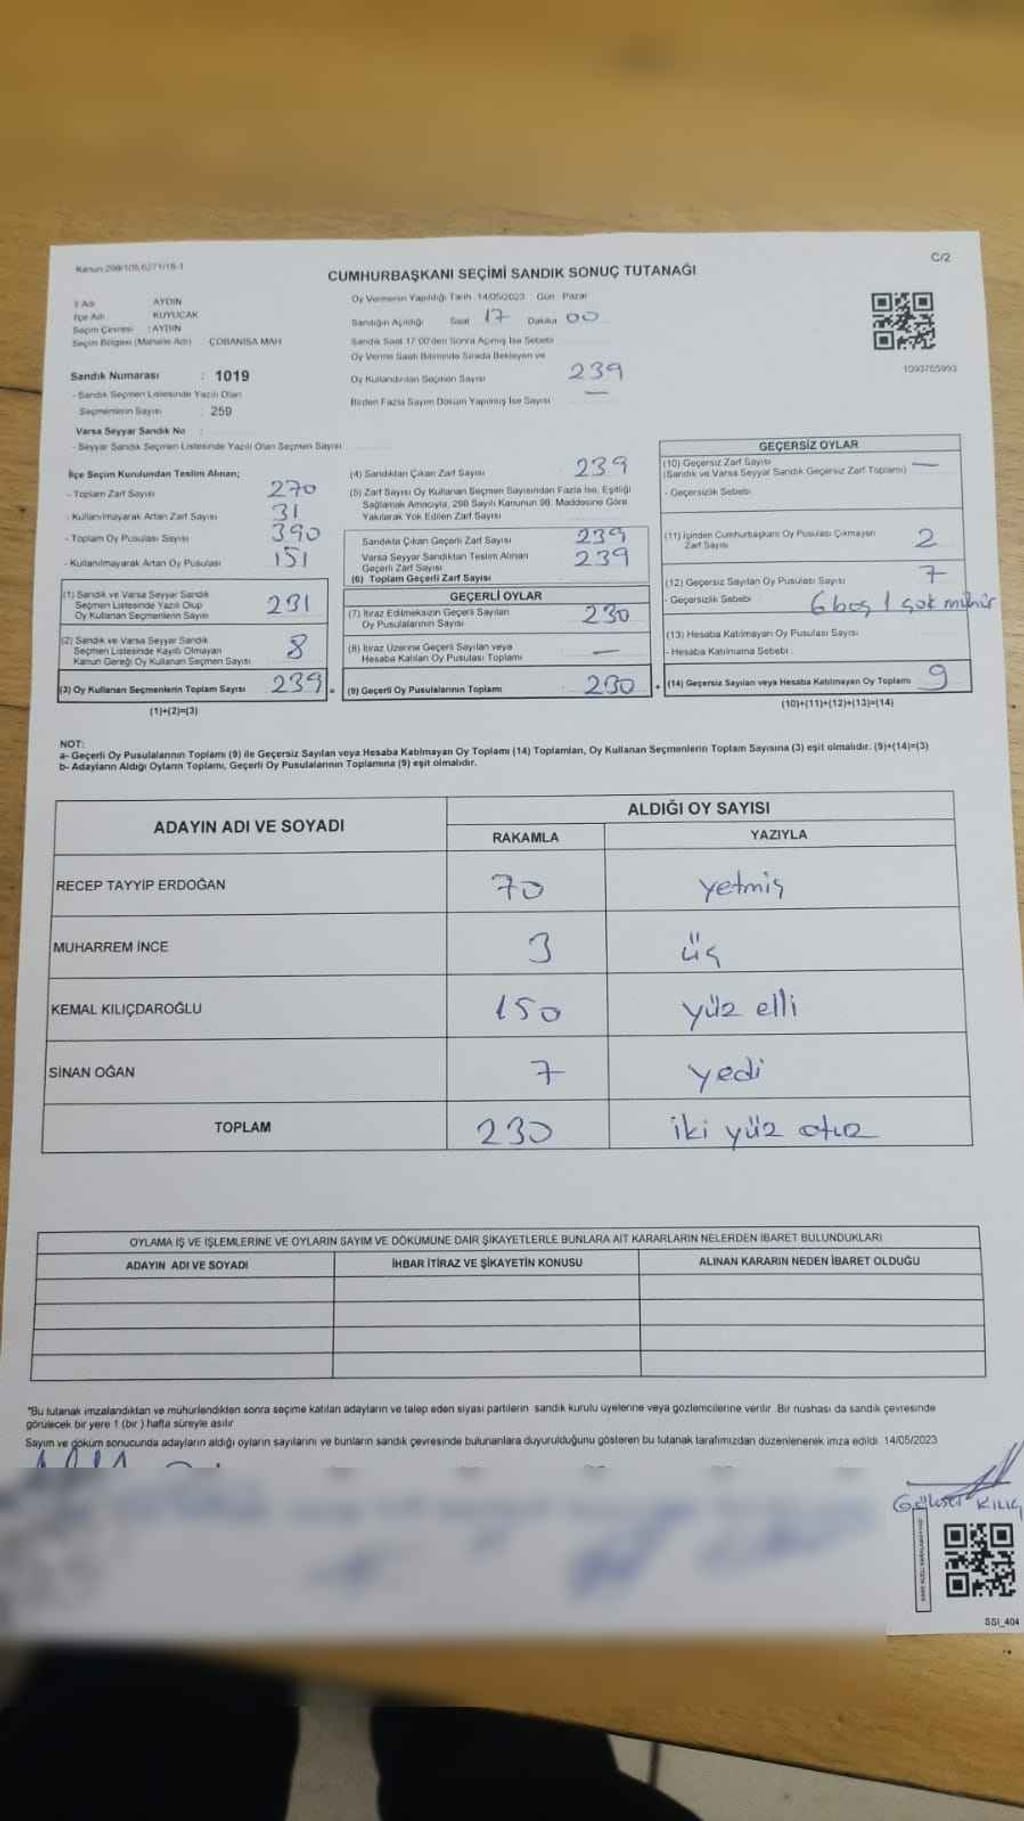 Kanun 298/105,6271/18-1
C/2
CUMHURBAŞKANI SEÇİMİ SANDIK SONUÇ TUTANAĞI
İl Adı AYDIN
İlçe Adı KUYUCAK
Seçim Çevresi : AYDIN
Seçim Bölgesi (Mahalle Adı) ÇOBANİSA MAH
Oy Vermenin Yapıldığı Tarih 14/05/2023 Gün Pazar
Sandığın Açıldığı Saat 17 Dakika 00
Sandık Saat 17:00'den Sonra Açılmış İse Sebebi
Oy Verme Saati Bitiminde Sırada Bekleyen ve
Oy Kullandırılan Seçmen Sayısı 239
Birden Fazla Sayım Döküm Yapılmış İse Sayısı —
1093765993
Sandık Numarası : 1019
- Sandık Seçmen Listesinde Yazılı Olan
Seçmenlerin Sayısı : 259
Varsa Seyyar Sandık No :
- Seyyar Sandık Seçmen Listesinde Yazılı Olan Seçmen Sayısı
İlçe Seçim Kurulundan Teslim Alınan;
- Toplam Zarf Sayısı 270
- Kullanılmayarak Artan Zarf Sayısı 31
- Toplam Oy Pusulası Sayısı 390
- Kullanılmayarak Artan Oy Pusulası 151
(1) Sandık ve Varsa Seyyar Sandık
Seçmen Listesinde Yazılı Olup
Oy Kullanan Seçmenlerin Sayısı 231
(2) Sandık ve Varsa Seyyar Sandık
Seçmen Listesinde Kayıtlı Olmayan
Kanun Gereği Oy Kullanan Seçmen Sayısı 8
(3) Oy Kullanan Seçmenlerin Toplam Sayısı 239 =
(1)+(2)=(3)
(4) Sandıktan Çıkan Zarf Sayısı 239
(5) Zarf Sayısı Oy Kullanan Seçmen Sayısından Fazla İse, Eşitliği
Sağlamak Amacıyla, 298 Sayılı Kanunun 98. Maddesine Göre
Yakılarak Yok Edilen Zarf Sayısı
Sandıkta Çıkan Geçerli Zarf Sayısı 239
Varsa Seyyar Sandıktan Teslim Alınan
Geçerli Zarf Sayısı 239
(6) Toplam Geçerli Zarf Sayısı
GEÇERLİ OYLAR
(7) İtiraz Edilmeksizin Geçerli Sayılan
Oy Pusulalarının Sayısı 230
(8) İtiraz Üzerine Geçerli Sayılan veya
Hesaba Katılan Oy Pusulası Toplamı —
(9) Geçerli Oy Pusulalarının Toplamı 230 +
GEÇERSİZ OYLAR
(10) Geçersiz Zarf Sayısı —
(Sandık ve Varsa Seyyar Sandık Geçersiz Zarf Toplamı)
- Geçersizlik Sebebi
(11) İçinden Cumhurbaşkanı Oy Pusulası Çıkmayan
Zarf Sayısı 2
(12) Geçersiz Sayılan Oy Pusulası Sayısı 7
- Geçersizlik Sebebi 6 boş 1 çok mühür
(13) Hesaba Katılmayan Oy Pusulası Sayısı
- Hesaba Katılmama Sebebi :
(14) Geçersiz Sayılan veya Hesaba Katılmayan Oy Toplamı 9
(10)+(11)+(12)+(13)=(14)
NOT:
a- Geçerli Oy Pusulalarının Toplamı (9) ile Geçersiz Sayılan veya Hesaba Katılmayan Oy Toplamı (14) Toplamları, Oy Kullanan Seçmenlerin Toplam Sayısına (3) eşit olmalıdır. (9)+(14)=(3)
b- Adayların Aldığı Oyların Toplamı, Geçerli Oy Pusulalarının Toplamına (9) eşit olmalıdır.
ADAYIN ADI VE SOYADI
ALDIĞI OY SAYISI
RAKAMLA YAZIYLA
RECEP TAYYİP ERDOĞAN 70 yetmiş
MUHARREM İNCE 3 üç
KEMAL KILIÇDAROĞLU 150 yüz elli
SİNAN OĞAN 7 yedi
TOPLAM 230 iki yüz otuz
OYLAMA İŞ VE İŞLEMLERİNE VE OYLARIN SAYIM VE DÖKÜMÜNE DAİR ŞİKAYETLERLE BUNLARA AİT KARARLARIN NELERDEN İBARET BULUNDUKLARI
ADAYIN ADI VE SOYADI İHBAR İTİRAZ VE ŞİKAYETİN KONUSU ALINAN KARARIN NEDEN İBARET OLDUĞU
"Bu tutanak imzalandıktan ve mühürlendikten sonra seçime katılan adayların ve talep eden siyasi partilerin sandık kurulu üyelerine veya gözlemcilerine verilir. Bir nüshası da sandık çevresinde
görülecek bir yere 1 (bir ) hafta süreyle asılır
Sayım ve döküm sonucunda adayların aldığı oyların sayılarını ve bunların sandık çevresinde bulunanlara duyurulduğunu gösteren bu tutanak tarafımızdan düzenlenerek imza edildi. 14/05/2023
KILIÇ
SSI_404